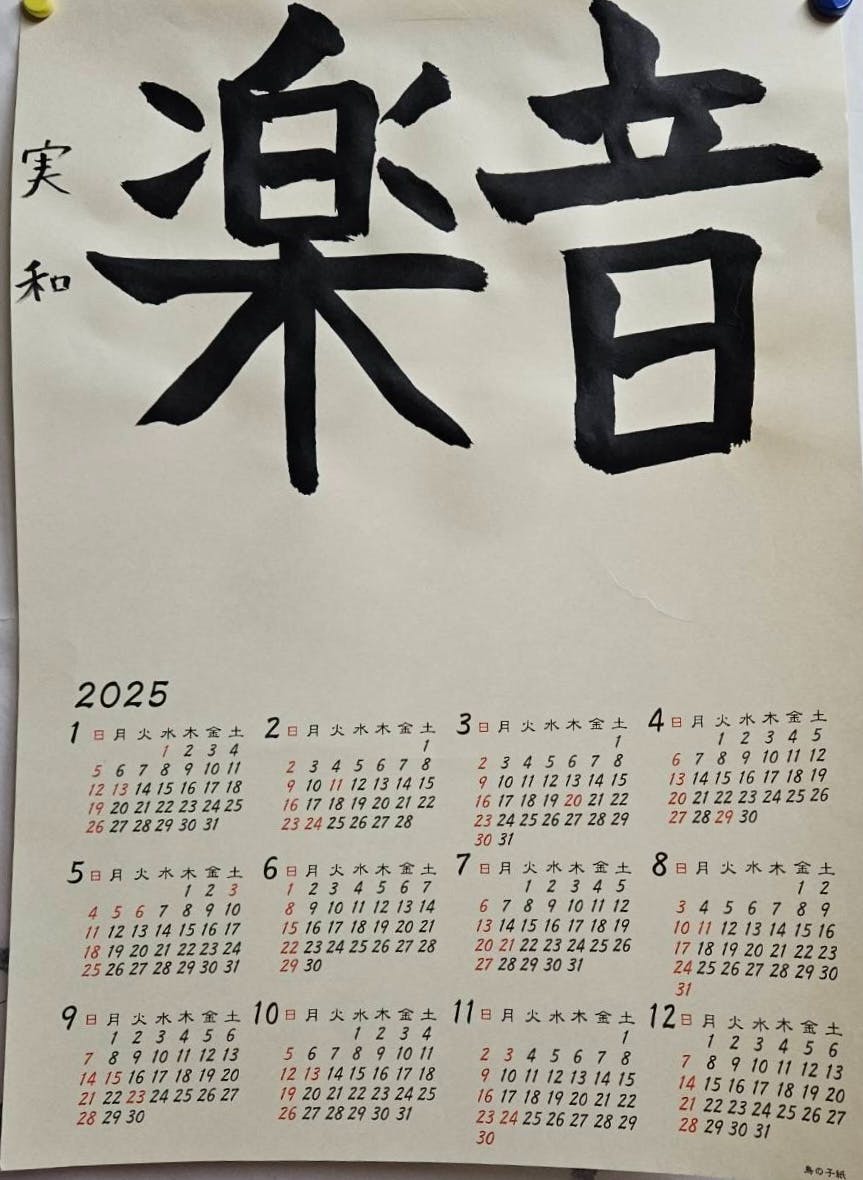 音楽
実和
2025
1
日 月 火 水 木 金 土
1 2 3 4
5 6 7 8 9 10 11
12 13 14 15 16 17 18
19 20 21 22 23 24 25
26 27 28 29 30 31
2
日 月 火 水 木 金 土
1
2 3 4 5 6 7 8
9 10 11 12 13 14 15
16 17 18 19 20 21 22
23 24 25 26 27 28
3
日 月 火 水 木 金 土
1
2 3 4 5 6 7 8
9 10 11 12 13 14 15
16 17 18 19 20 21 22
23 24 25 26 27 28 29
30 31
4
日 月 火 水 木 金 土
1 2 3 4 5
6 7 8 9 10 11 12
13 14 15 16 17 18 19
20 21 22 23 24 25 26
27 28 29 30
5
日 月 火 水 木 金 土
1 2 3
4 5 6 7 8 9 10
11 12 13 14 15 16 17
18 19 20 21 22 23 24
25 26 27 28 29 30 31
6
日 月 火 水 木 金 土
1 2 3 4 5 6 7
8 9 10 11 12 13 14
15 16 17 18 19 20 21
22 23 24 25 26 27 28
29 30
7
日 月 火 水 木 金 土
1 2 3 4 5
6 7 8 9 10 11 12
13 14 15 16 17 18 19
20 21 22 23 24 25 26
27 28 29 30 31
8
日 月 火 水 木 金 土
1 2
3 4 5 6 7 8 9
10 11 12 13 14 15 16
17 18 19 20 21 22 23
24 25 26 27 28 29 30
31
9
日 月 火 水 木 金 土
1 2 3 4 5 6
7 8 9 10 11 12 13
14 15 16 17 18 19 20
21 22 23 24 25 26 27
28 29 30
10
日 月 火 水 木 金 土
1 2 3 4
5 6 7 8 9 10 11
12 13 14 15 16 17 18
19 20 21 22 23 24 25
26 27 28 29 30 31
11
日 月 火 水 木 金 土
1
2 3 4 5 6 7 8
9 10 11 12 13 14 15
16 17 18 19 20 21 22
23 24 25 26 27 28 29
30
12
日 月 火 水 木 金 土
1 2 3 4 5 6
7 8 9 10 11 12 13
14 15 16 17 18 19 20
21 22 23 24 25 26 27
28 29 30 31
鳥の子紙